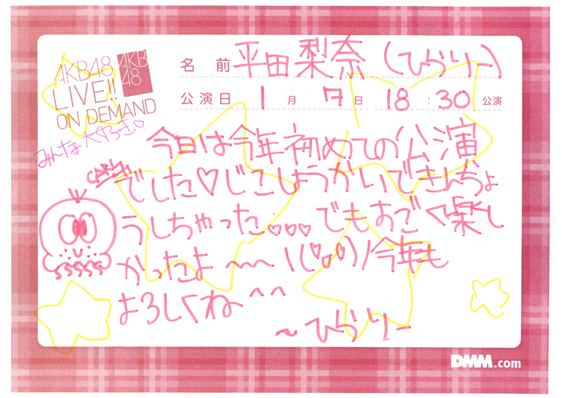 AKB48
LIVE!!
ON DEMAND
AKB
48
名前 平田梨奈(ひらりー)
公演日 1月7日 18:30公演
みんな大好き♡
今日は今年初めての公演
でした♡じこしょうかいできんちょ
うしちゃった…でもすごく楽し
かったよ〜〜\(♡o♡)/今年も
よろしくね^^
〜ひらりー
DMM.com